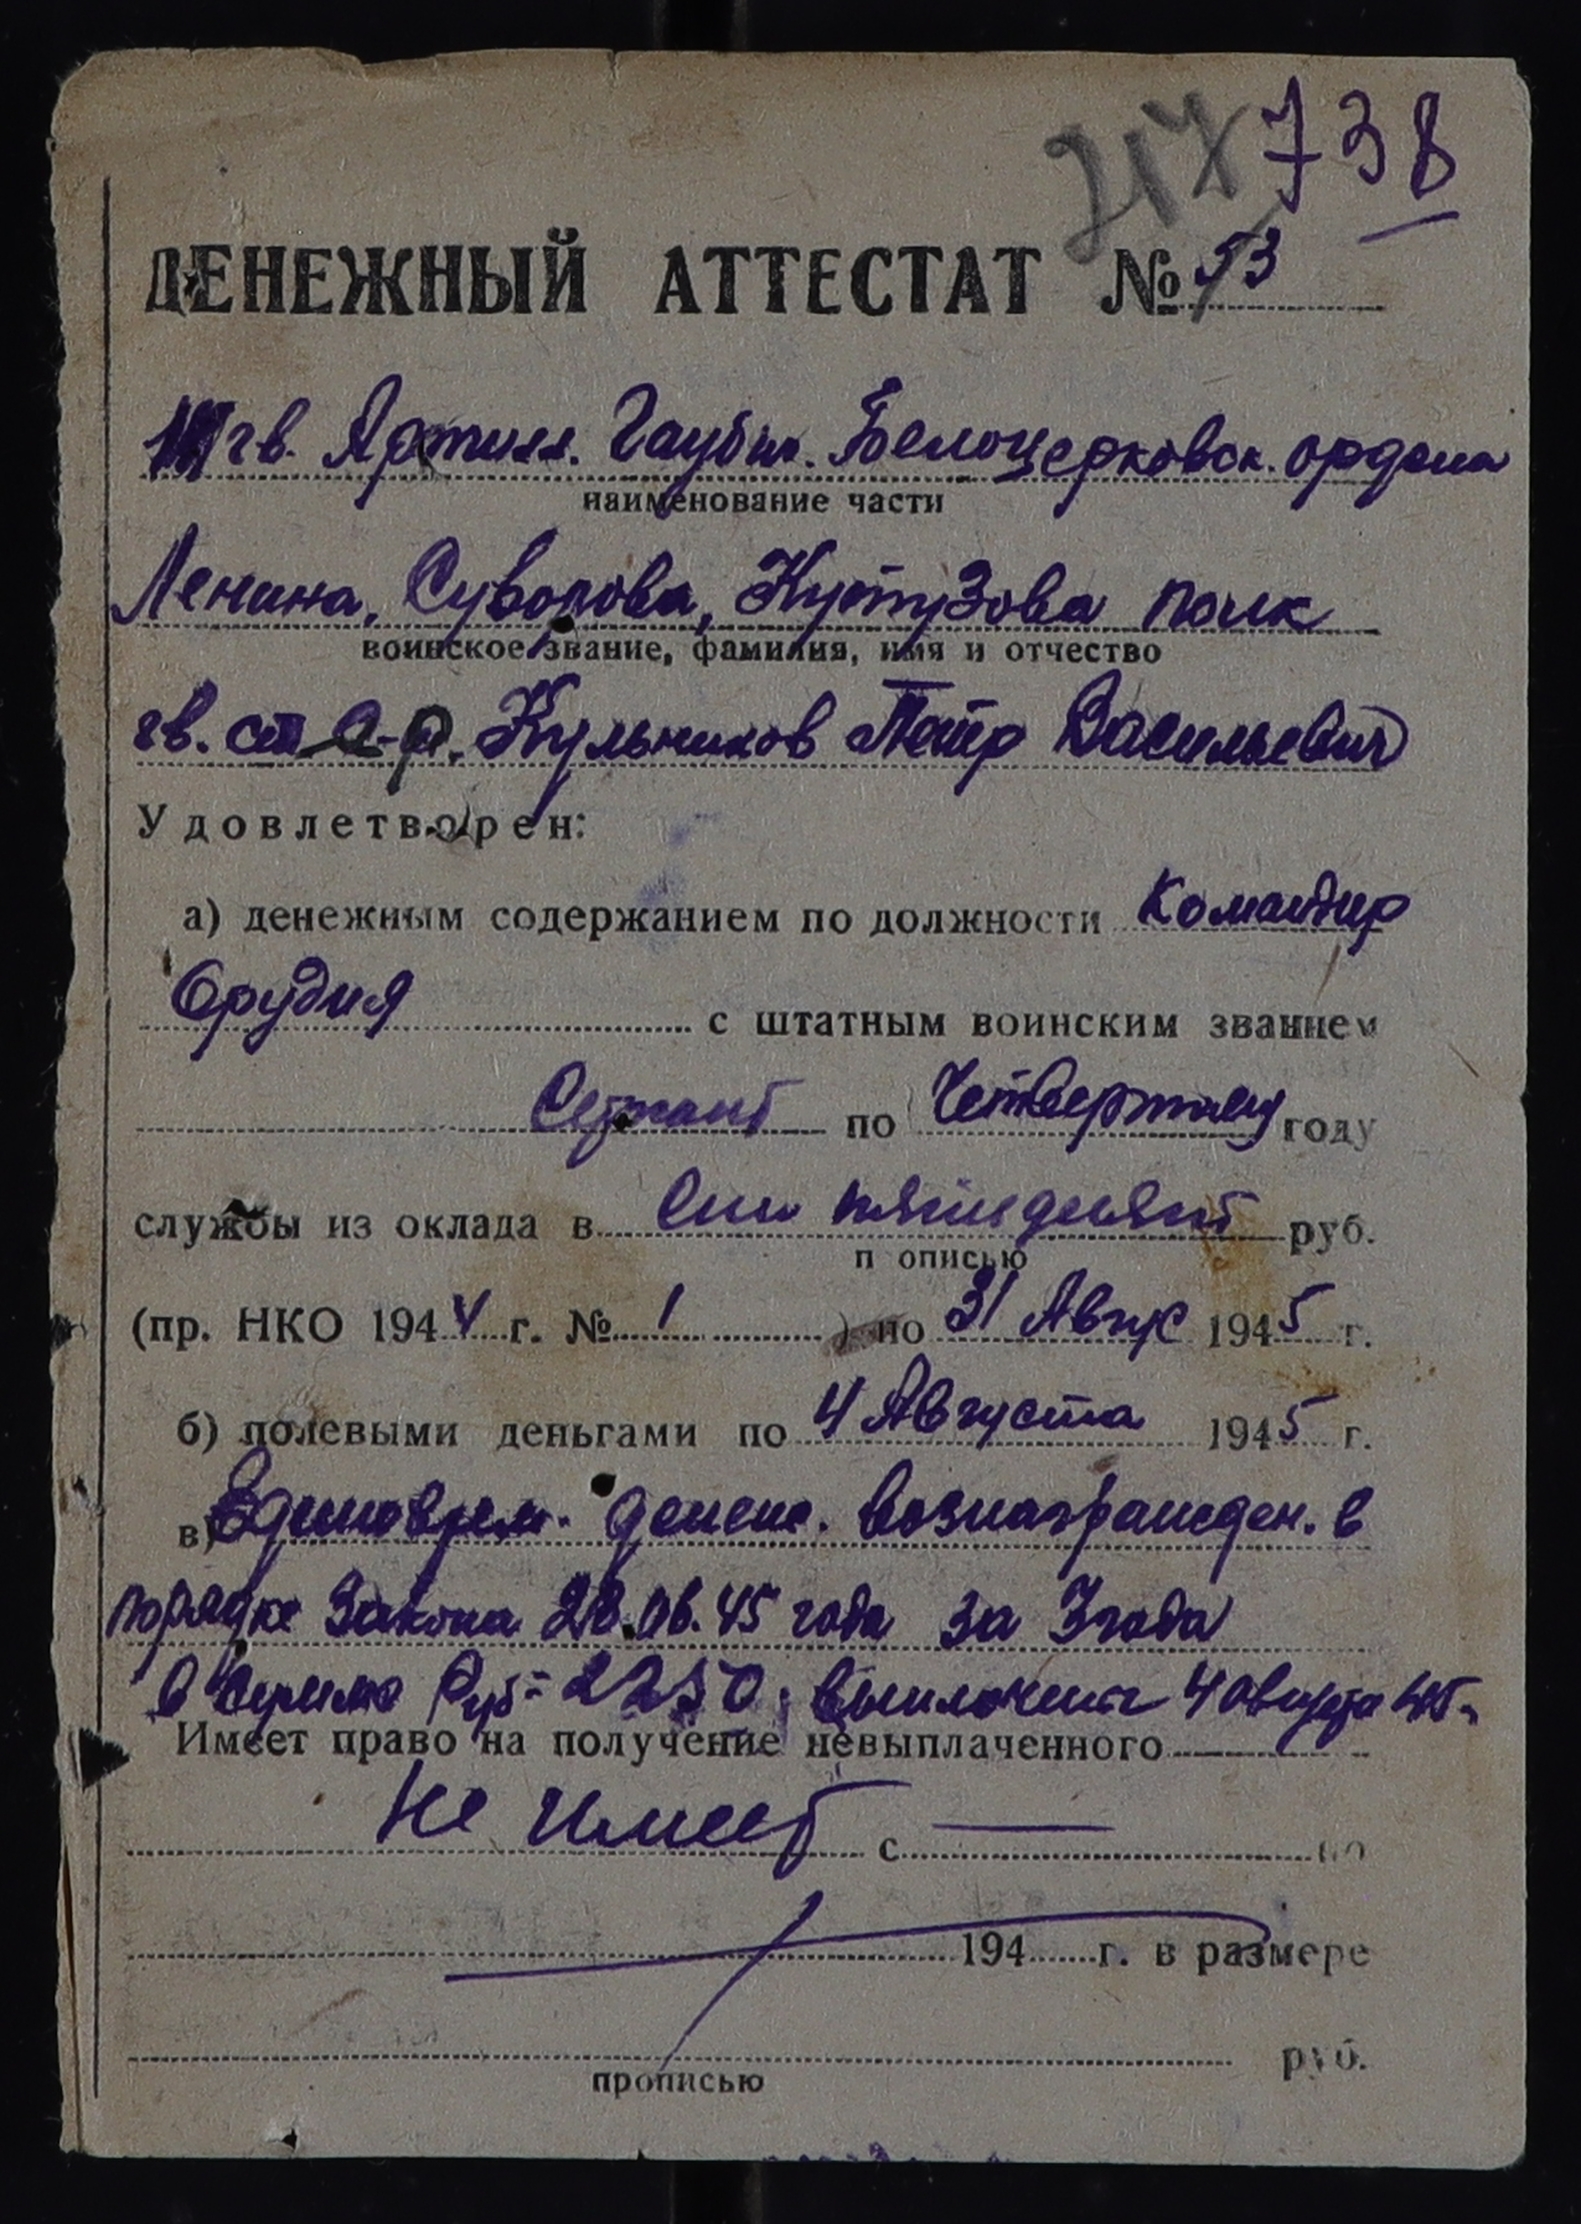 217 738
ДЕНЕЖНЫЙ АТТЕСТАТ № 53
гв. Артилл. Гаубич. Белоцерковск. ордена
наименование части
Ленина, Суворова, Кутузова полк
воинское звание, фамилия, имя и отчество
гв. ст. с-р. Кульчиков Петр Васильевич
Удовлетворен:
а) денежным содержанием по должности Командир
Орудия с штатным воинским званием
Сержант по Четвертому году
службы из оклада в Сто пятьдесят руб.
п описью
(пр. НКО 1944 г. № 1 ) по 31 Авгус 1945 г.
б) полевыми деньгами по 4 Августа 1945 г.
в) Единоврем. денеж. вознагражден. в
порядке Закона 23.06.45 года за 3 года
в сумме Руб = 2250. выплочено 4 августа 45 г.
Имеет право на получение невыплаченного
Не имеет с — по
194 г. в размере
руб.
прописью